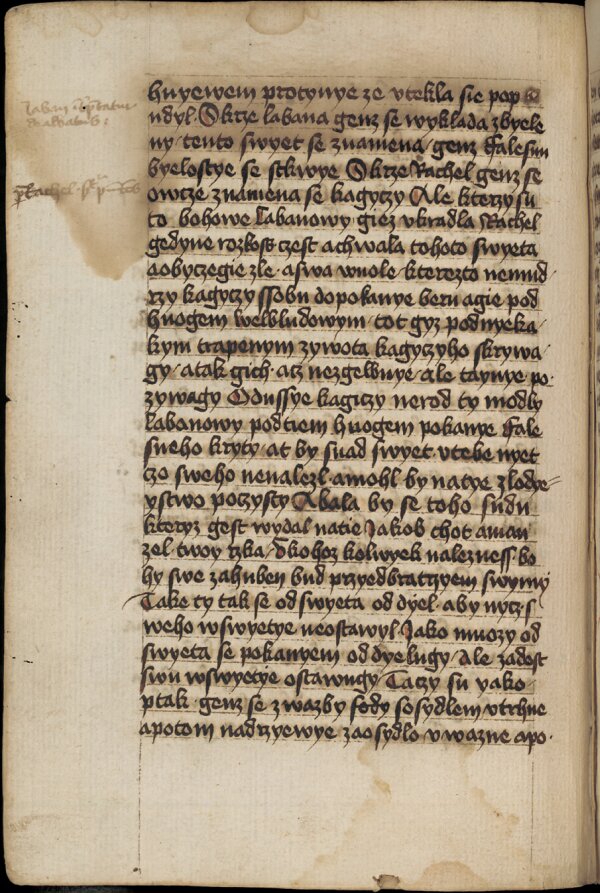 Laban interpretatur
dealbatus:
Rachel
hnyewem protynye ze vtekla sie pop
ndyl. Skrze labana genz se wyklada zbyele
ny tento swyet se znamena genz ffalessnu
byelostye se stkwye Skrze Rachel genz se
owcze znamena se kagyczy Ale kterzy su
to bohowe labanowy giez vkradla Rachel
gedyne rozkoss czest a chwala tohoto swyeta
a obyczegie zle. a swa wuole kterezto nemud
rzy kagyczy ssobu do pokanye beru a gie pod
hnogem welbludowym tot gyz pod nyeka
kym trapenym zywota kagyczyho skrywa
gy a tak gich acz nezgelbuye. ale taynye po
zywagy O dussye kagiczy nerod ty modly
labanowy pod tiem hnogem pokanye ffale
sneho kryty. at by snad swyet v tebe nyet
czo sweho nenalezl. a mohl by na tye zlodye
ystwo poczysty A bala by se toho sudu
kteryz gest wydal na tie Jakob chot a man
zel twoy rzka. v kohoz kolwyek nalezness bo
hy swe zahuben bud przyed bratrzyem swymy
Take ty tak se od swyeta od dyel. aby nycz s
weho w swyetye neostawyl. Jako mnozy od
swyeta se pokanyem od dyelugy Ale zadost
swu w swyetye ostawugy Taczy su yako
ptak genz se z wazby sody se sydlem vtrhne
a potom nad rzyewye za o sydlo vwazne a po